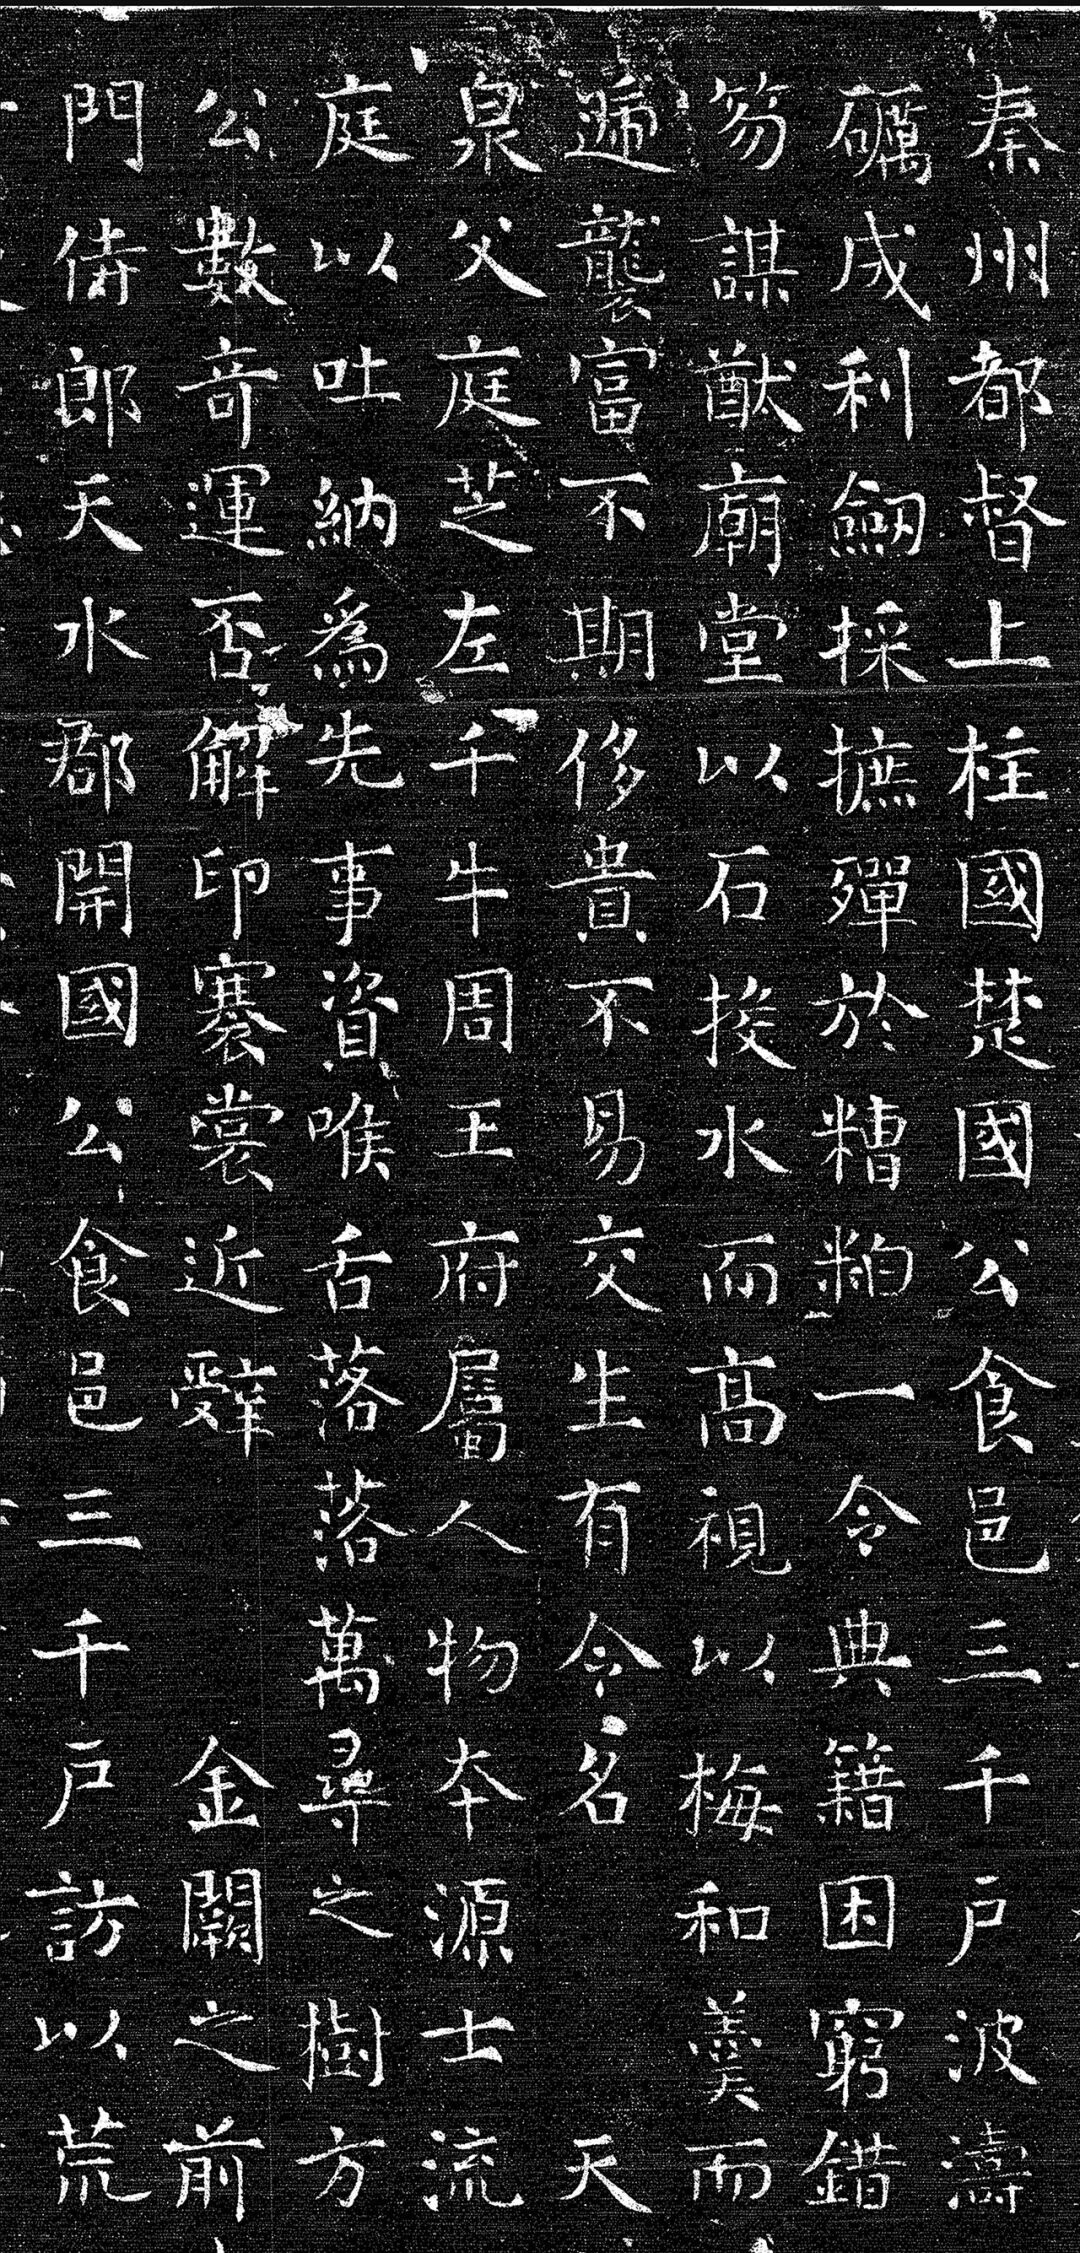 秦州都督上柱國楚國公食邑三千戶波濤
礪成利劒採摭殫於糟粕一令典籍困窮錯
笏謀猷廟堂以石投水而高視以梅和羹而
遞襲富不期侈貴不易交生有令名 天
泉父庭芝左千牛周王府屬人物本源士流
庭以吐納爲先事資喉舌落落萬尋之樹方
公數奇運否解印褰裳近辭 金闕之前
門侍郎天水郡開國公食邑三千戶訪以荒